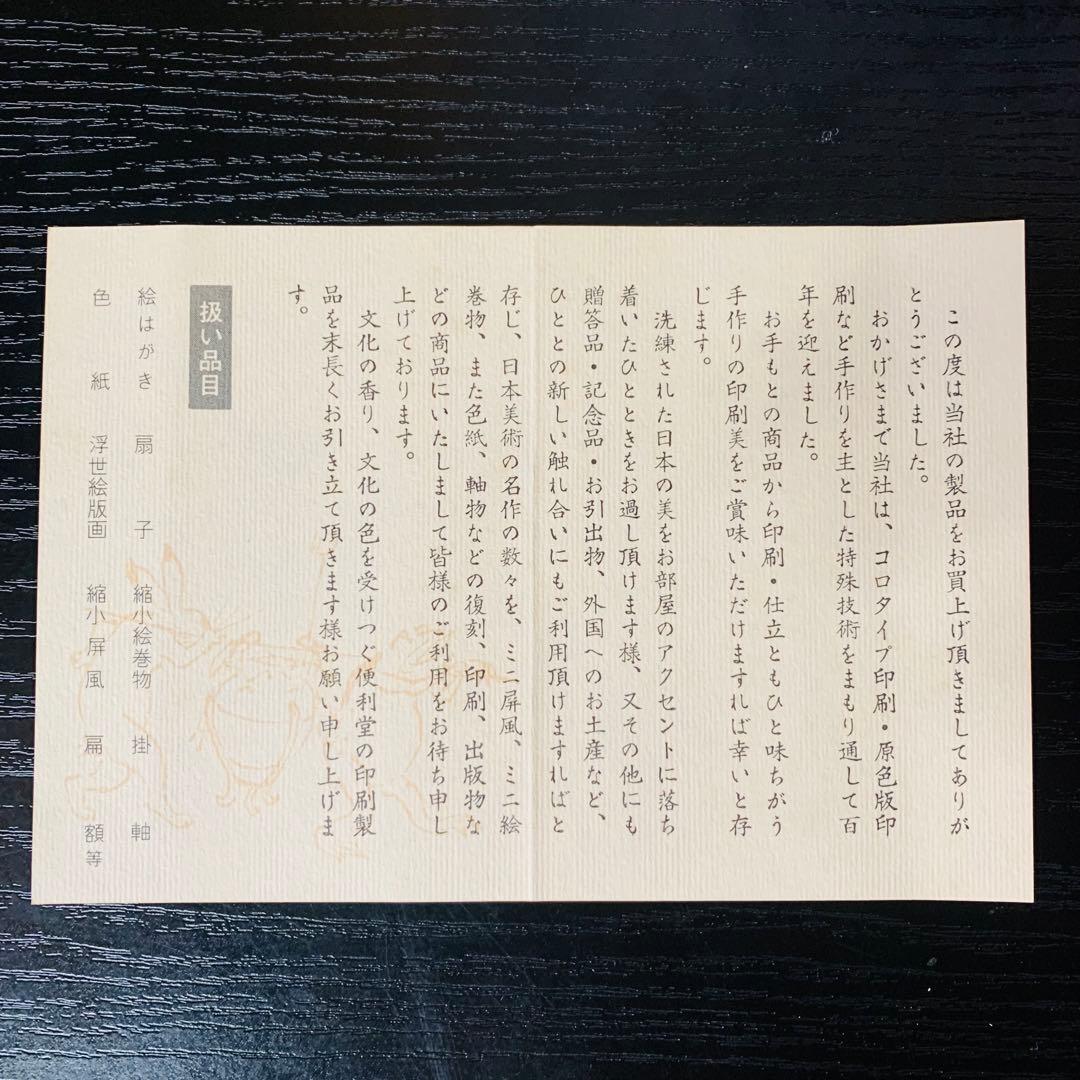 この度は当社の製品をお買上げ頂きましてありが
とうございました。
おかげさまで当社は、コロタイプ印刷・原色版印
刷など手作りを主とした特殊技術をまもり通して百
年を迎えました。
お手もとの商品から印刷・仕立ともひと味ちがう
手作りの印刷美をご賞味いただけますれば幸いと存
じます。
洗練された日本の美をお部屋のアクセントに落ち
着いたひとときをお過し頂けます様、又その他にも
贈答品・記念品・お引出物、外国へのお土産など、
ひととの新しい触れ合いにもご利用頂けますればと
存じ、日本美術の名作の数々を、ミニ屏風、ミニ絵
巻物、また色紙、軸物などの復刻、印刷、出版物な
どの商品にいたしまして皆様のご利用をお待ち申し
上げております。
文化の香り、文化の色を受けつぐ便利堂の印刷製
品を末長くお引き立て頂きます様お願い申し上げま
す。
扱い品目
絵はがき 扇子 縮小絵巻物 掛軸
色紙 浮世絵版画 縮小屏風 扁額等